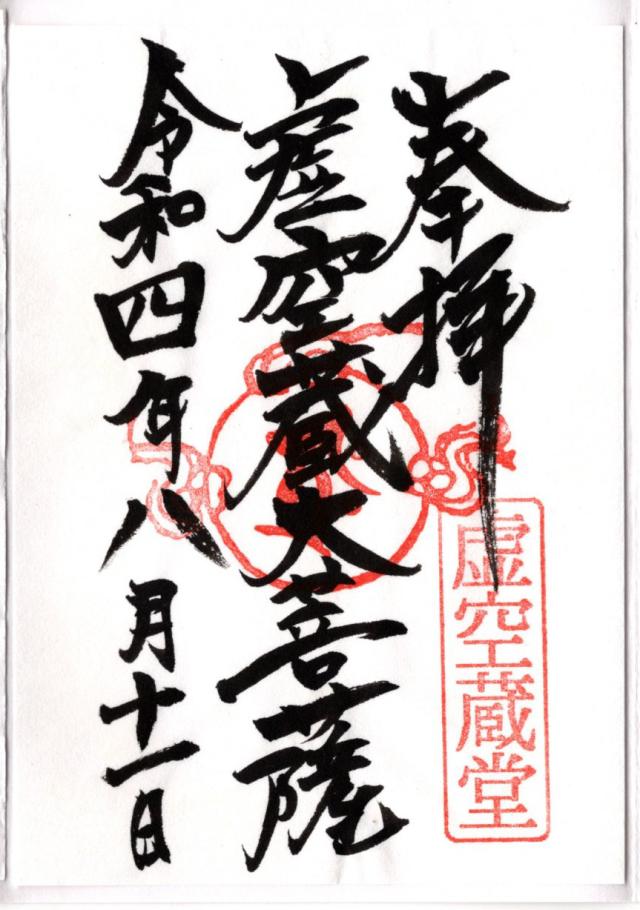 奉拝
虚空蔵大菩薩
令和四年八月十一日
虚空蔵堂